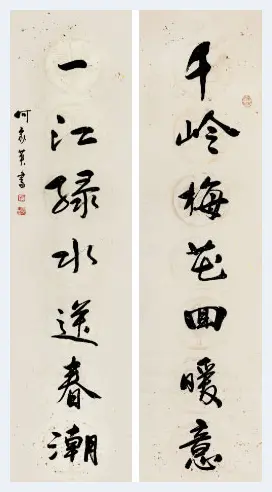 千岭梅花回暖意
一江绿水送春潮
何家英书